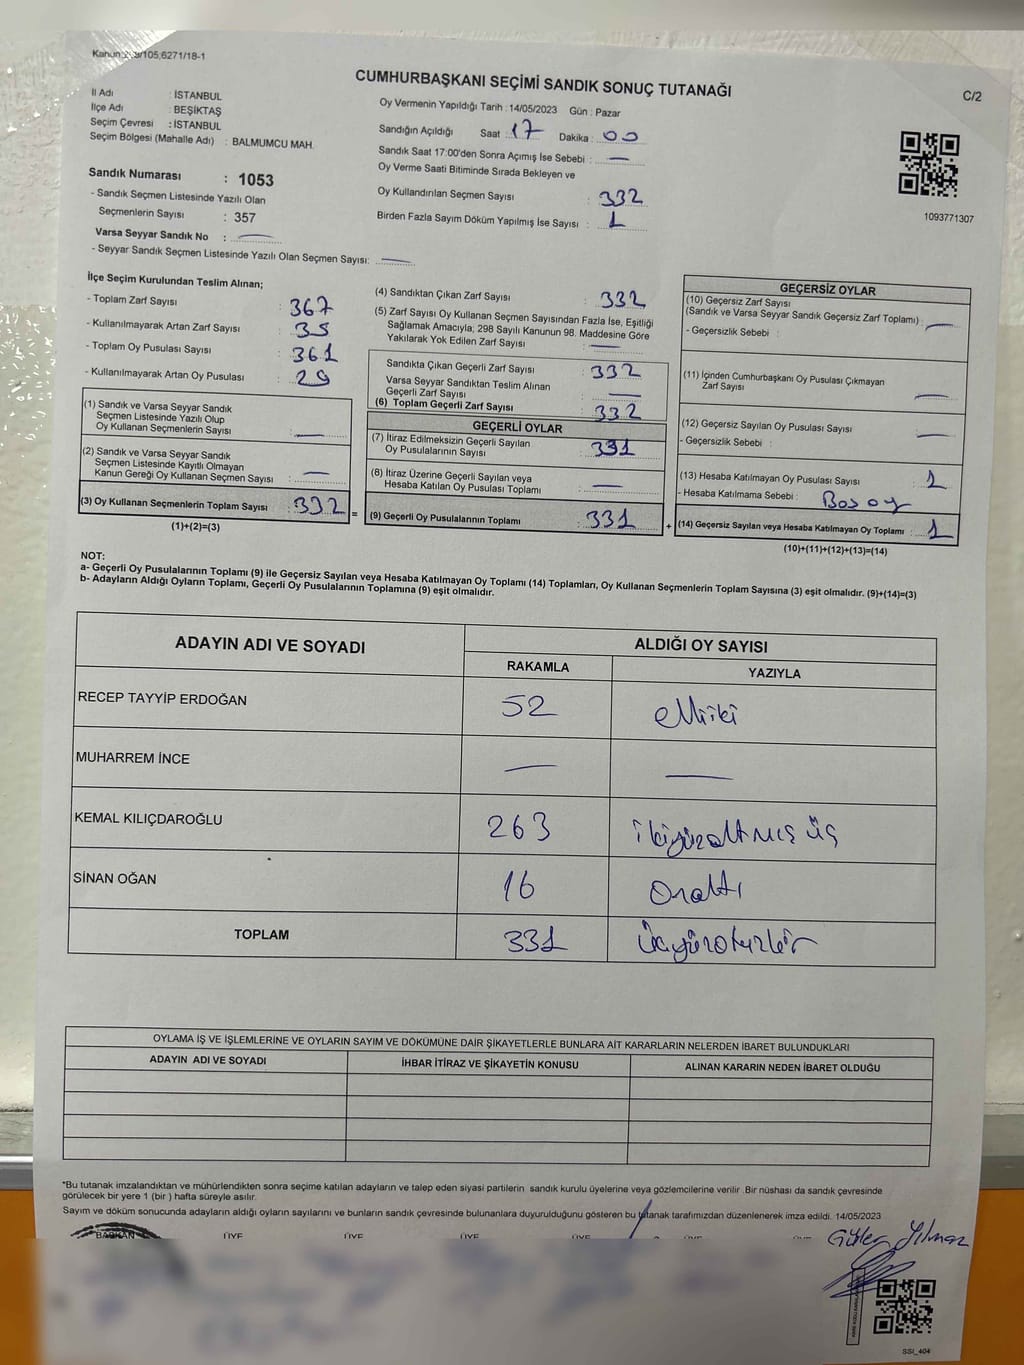 Kanun:298/105,6271/18-1
CUMHURBAŞKANI SEÇİMİ SANDIK SONUÇ TUTANAĞI
C/2
İl Adı : İSTANBUL
İlçe Adı : BEŞİKTAŞ
Seçim Çevresi : İSTANBUL
Seçim Bölgesi (Mahalle Adı) : BALMUMCU MAH.
Sandık Numarası : 1053
- Sandık Seçmen Listesinde Yazılı Olan
Seçmenlerin Sayısı : 357
Varsa Seyyar Sandık No : —
- Seyyar Sandık Seçmen Listesinde Yazılı Olan Seçmen Sayısı: —
Oy Vermenin Yapıldığı Tarih : 14/05/2023 Gün : Pazar
Sandığın Açıldığı Saat : 17 Dakika : 00
Sandık Saat 17:00'den Sonra Açımış İse Sebebi : —
Oy Verme Saati Bitiminde Sırada Bekleyen ve
Oy Kullandırılan Seçmen Sayısı : 332
Birden Fazla Sayım Döküm Yapılmış İse Sayısı : 1
1093771307
İlçe Seçim Kurulundan Teslim Alınan;
- Toplam Zarf Sayısı : 367
- Kullanılmayarak Artan Zarf Sayısı : 35
- Toplam Oy Pusulası Sayısı : 361
- Kullanılmayarak Artan Oy Pusulası : 29
(1) Sandık ve Varsa Seyyar Sandık
Seçmen Listesinde Yazılı Olup
Oy Kullanan Seçmenlerin Sayısı : —
(2) Sandık ve Varsa Seyyar Sandık
Seçmen Listesinde Kayıtlı Olmayan
Kanun Gereği Oy Kullanan Seçmen Sayısı : —
(3) Oy Kullanan Seçmenlerin Toplam Sayısı : 332
(1)+(2)=(3)
=
(4) Sandıktan Çıkan Zarf Sayısı : 332
(5) Zarf Sayısı Oy Kullanan Seçmen Sayısından Fazla İse, Eşitliği
Sağlamak Amacıyla; 298 Sayılı Kanunun 98. Maddesine Göre
Yakılarak Yok Edilen Zarf Sayısı : —
Sandıkta Çıkan Geçerli Zarf Sayısı : 332
Varsa Seyyar Sandıktan Teslim Alınan
Geçerli Zarf Sayısı : —
(6) Toplam Geçerli Zarf Sayısı : 332
GEÇERLİ OYLAR
(7) İtiraz Edilmeksizin Geçerli Sayılan
Oy Pusulalarının Sayısı : 331
(8) İtiraz Üzerine Geçerli Sayılan veya
Hesaba Katılan Oy Pusulası Toplamı : —
(9) Geçerli Oy Pusulalarının Toplamı : 331
+
GEÇERSİZ OYLAR
(10) Geçersiz Zarf Sayısı
(Sandık ve Varsa Seyyar Sandık Geçersiz Zarf Toplamı) : —
- Geçersizlik Sebebi :
(11) İçinden Cumhurbaşkanı Oy Pusulası Çıkmayan
Zarf Sayısı : —
(12) Geçersiz Sayılan Oy Pusulası Sayısı : —
- Geçersizlik Sebebi :
(13) Hesaba Katılmayan Oy Pusulası Sayısı : 1
- Hesaba Katılmama Sebebi : Bos oy
(14) Geçersiz Sayılan veya Hesaba Katılmayan Oy Toplamı : 1
(10)+(11)+(12)+(13)=(14)
NOT:
a- Geçerli Oy Pusulalarının Toplamı (9) ile Geçersiz Sayılan veya Hesaba Katılmayan Oy Toplamı (14) Toplamları, Oy Kullanan Seçmenlerin Toplam Sayısına (3) eşit olmalıdır. (9)+(14)=(3)
b- Adayların Aldığı Oyların Toplamı, Geçerli Oy Pusulalarının Toplamına (9) eşit olmalıdır.
ADAYIN ADI VE SOYADI
ALDIĞI OY SAYISI
RAKAMLA YAZIYLA
RECEP TAYYİP ERDOĞAN 52 elliiki
MUHARREM İNCE — —
KEMAL KILIÇDAROĞLU 263 ikiyüzaltmış üç
SİNAN OĞAN 16 Onaltı
TOPLAM 331 Üçyüzotuzbir
OYLAMA İŞ VE İŞLEMLERİNE VE OYLARIN SAYIM VE DÖKÜMÜNE DAİR ŞİKAYETLERLE BUNLARA AİT KARARLARIN NELERDEN İBARET BULUNDUKLARI
ADAYIN ADI VE SOYADI İHBAR İTİRAZ VE ŞİKAYETİN KONUSU ALINAN KARARIN NEDEN İBARET OLDUĞU
*Bu tutanak imzalandıktan ve mühürlendikten sonra seçime katılan adayların ve talep eden siyasi partilerin sandık kurulu üyelerine veya gözlemcilerine verilir .Bir nüshası da sandık çevresinde
görülecek bir yere 1 (bir ) hafta süreyle asılır.
Sayım ve döküm sonucunda adayların aldığı oyların sayılarını ve bunların sandık çevresinde bulunanlara duyurulduğunu gösteren bu tutanak tarafımızdan düzenlenerek imza edildi. 14/05/2023
BAŞKAN ÜYE ÜYE ÜYE ÜYE ÜYE
Yılmaz
SSI_404